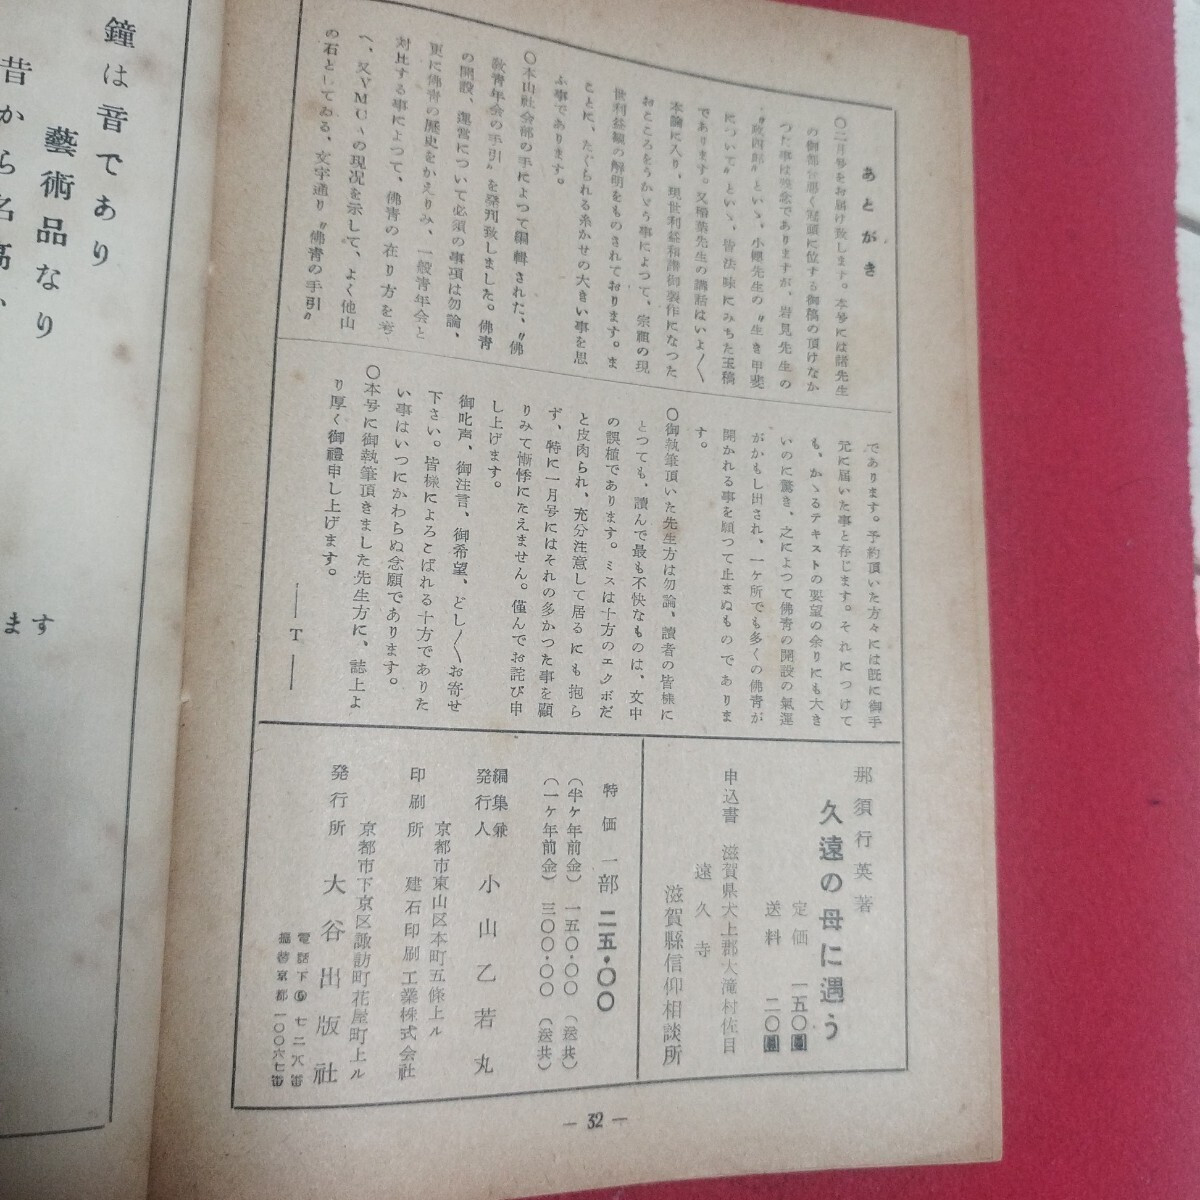 あとがき
〇二月号をお届け致します。本号には諸先生
の御都合悪く冠頭に位する御稿の頂けなか
つた事は残念でありますが、岩見先生の
〝政四郎〟といゝ、小幡先生の〝生き甲斐
について〟といゝ、皆法味にみちた玉稿
であります。又稲葉先生の講話はいよ〱
本論に入り、現世利益和讃御製作になつた
おところをうかゞう事によつて、宗祖の現
世利益観の解明をものされております。ま
ことに、たぐられる糸かせの大きい事を思
ふ事であります。
〇本山社会部の手によつて編輯された、〝佛
教青年会の手引〟を発刊致しました。佛青
の開設、運営について必須の事項は勿論、
更に佛青の歴史をかえりみ、一般青年会と
対比する事によつて、佛青の在り方を考
へ、又YMCAの現況を示して、よく他山
の石としてゐる、文字通り〝佛青の手引〟
であります。予約頂いた方々には既に御手
元に届いた事と存じます。それにつけて
も、かゝるテキストの要望の余りにも大き
いのに驚き、之によつて佛青の開設の氣運
がかもし出され、一ケ所でも多くの佛青が
開かれる事を願つて止まぬものでありま
す。
〇御執筆頂いた先生方は勿論、讀者の皆様に
とつても、讀んで最も不快なものは、文中
の誤植であります。ミスは十方のエクボだ
と皮肉られ、充分注意して居るにも抱ら
ず、特に一月号にはそれの多かつた事を顧
りみて慚愧にたえません。僅んでお詫び申
し上げます。
御叱声、御注言、御希望、どし〱お寄せ
下さい。皆様によろこばれる十方でありた
い事はいつにかわらぬ念願であります。
〇本号に御執筆頂きました先生方に、誌上よ
り厚く御禮申し上げます。
―T―
那須行英著
久遠の母に遇う
定価 一五〇圓
送料 二〇圓
申込書 滋賀県犬上郡大滝村佐目
遠久寺
滋賀縣信仰相談所
特価一部 二五・〇〇
(半ケ年前金) 一五〇・〇〇 (送共)
(一ケ年前金) 三〇〇・〇〇 (送共)
編集兼
発行人 小山乙若丸
京都市東山区本町五條上ル
印刷所 建石印刷工業株式会社
京都市下京区諏訪町花屋町上ル
発行所 大谷出版社
電話下⑥七二八番
振替京都一〇〇六七番
― 32 ―
鐘は音であり
藝術品なり
昔から名高い
ます